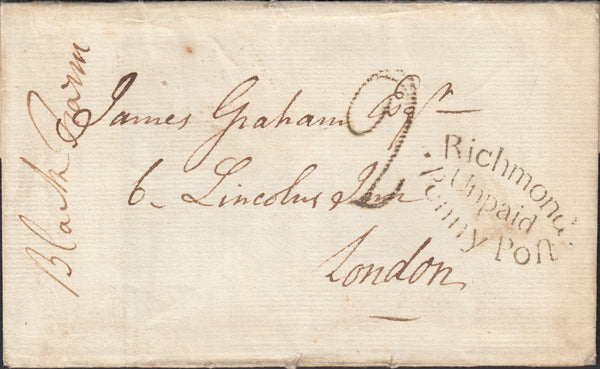 James Graham Esqr
6 Lincolns Inn
London
2
Richmond
Unpaid
Penny Post
Black Farm